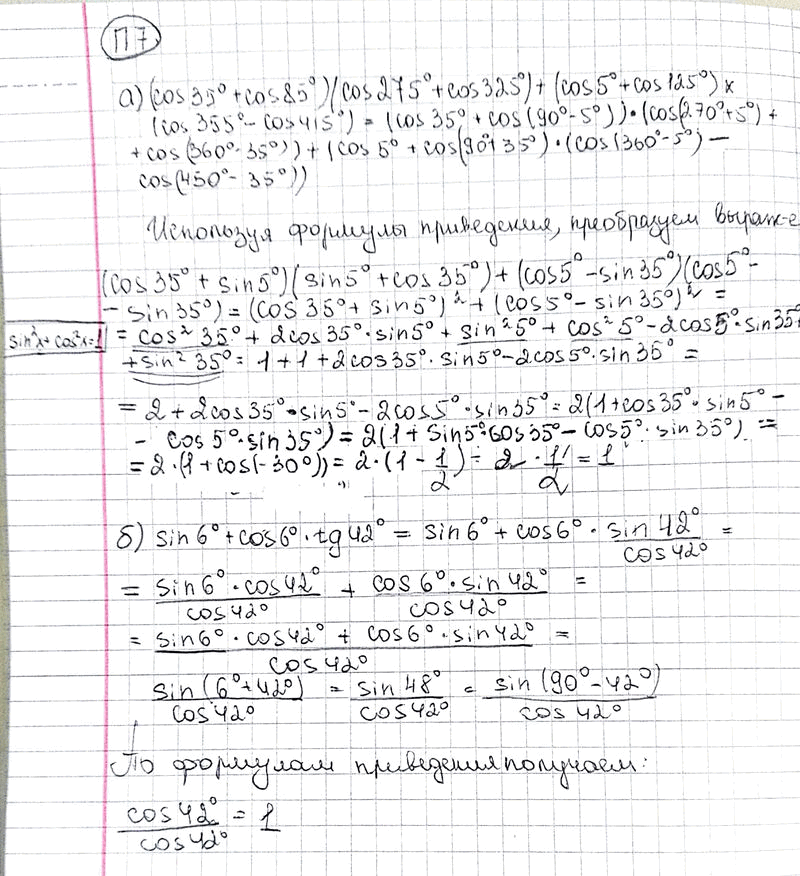 П7
а) (cos 35° + cos 85°)(cos 275° + cos 325°) + (cos 5° + cos 125°) ×
(cos 355° - cos 415°) = (cos 35° + cos (90° - 5°)) · (cos(270° + 5°) +
+ cos(360° - 35°)) + (cos 5° + cos(90° + 35°) · (cos(360° - 5°) —
cos(450° - 35°))
Используя формулы приведения, преобразуем выраж-е
(cos 35° + sin 5°)(sin 5° + cos 35°) + (cos 5° - sin 35°)(cos 5° -
- sin 35°) = (cos 35° + sin 5°)² + (cos 5° - sin 35°)² =
sin²x + cos²x = 1
= cos² 35° + 2cos 35° · sin 5° + sin² 5° + cos² 5° - 2cos 5° · sin 35° +
+ sin² 35° = 1 + 1 + 2cos 35° · sin 5° - 2cos 5° · sin 35° =
= 2 + 2cos 35° · sin 5° - 2cos 5° · sin 35° = 2(1 + cos 35° · sin 5° -
- cos 5° · sin 35°) = 2(1 + sin 5° · cos 35° - cos 5° · sin 35°) =
= 2 · (1 + cos(-30°)) = 2 · (1 - 1/2) = 2 · 1/2 = 1
б) sin 6° + cos 6° · tg 42° = sin 6° + cos 6° · sin 42°/cos 42° =
= sin 6° · cos 42°/cos 42° + cos 6° · sin 42°/cos 42° =
= sin 6° · cos 42° + cos 6° · sin 42°/cos 42° =
sin (6° + 42°)/cos 42° = sin 48°/cos 42° = sin (90° - 42°)/cos 42°
По формулам приведения получаем:
cos 42°/cos 42° = 1